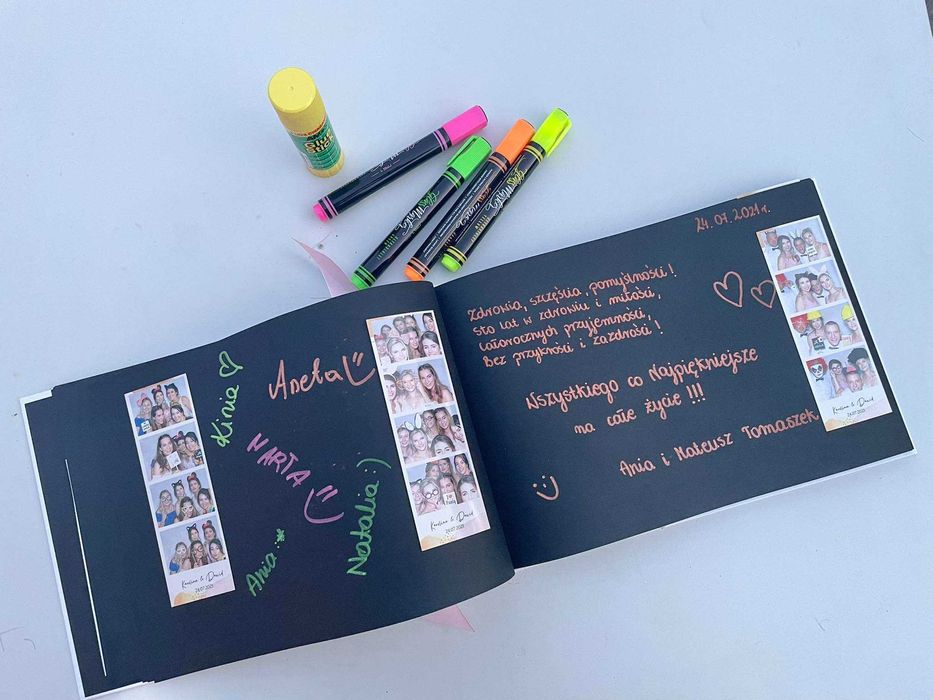 Glue
Stick
Kinia
Aneta
MARTA
Natalia :)
Ania :*
Karolina & Dawid
24.07.2021
Karolina & Dawid
24.07.2021
24.07.2021r.
Zdrowia, szczęścia, pomyślności!
Sto lat w zdrowiu i miłości,
Całorocznych przyjemności,
Bez przykrości i zazdrości!
Wszystkiego co Najpiękniejsze
na całe życie !!!
Ania i Mateusz Tomaszek
Karolina & Dawid
24.07.2021